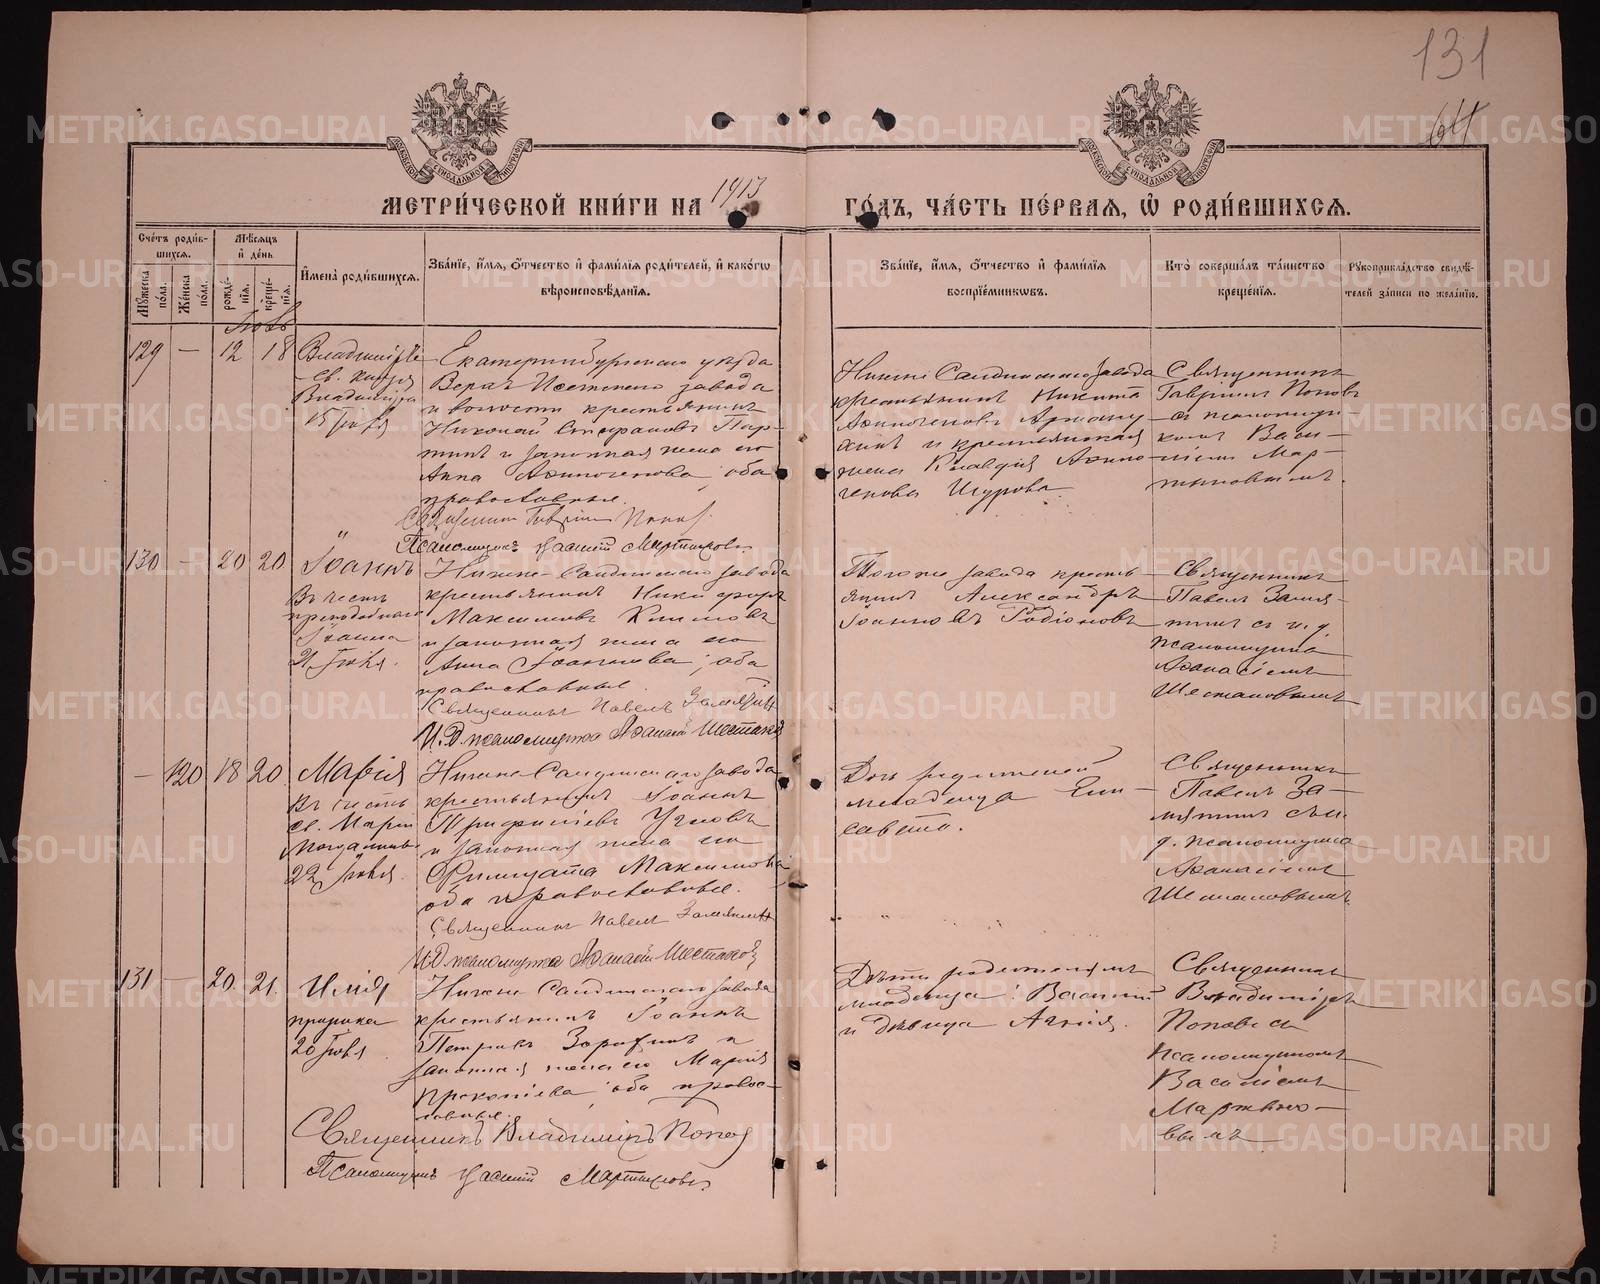 131
64
МЕТРИ́ЧЕСКОЙ КНИ́ГИ НА 1913 ГО́ДЪ, ЧА́СТЬ ПЕ́РВАЯ, Ѡ҆ РОДИ́ВШИХСЯ.
Сче́тъ роди́в-
шихся.
Му́жеска по́ла.
Же́нска по́ла.
Мѣ́сяцъ
и҆ де́нь
рожде́-
нїя.
креще́-
нїя.
И҆мена̀ роди́вшихся.
Зва́нїе, и҆́мя, ѻ҆́тчество и҆ фами́лїя роди́телей, и҆ како́гѡ
вѣроисповѣ́данїя.
Зва́нїе, и҆́мя, ѻ҆́тчество и҆ фами́лїя
воспрїе́мниковъ.
Кто̀ соверша́лъ та́инство
креще́нїя.
Рꙋкоприкла́дство свидѣ́-
телей за́писи по жела́нїю.
Іюль
129 — 12 18
Владиміръ
св. князя
Владиміра
15 Іюля
Екатеринбургскаго уѣзда
Верхъ Исетскаго завода
и волости крестьянинъ
Николай Стефановъ Пар-
тинъ и законная жена его
Анна Афиногенова, оба
православные.
Священникъ Гавріилъ Поповъ
Псаломщикъ Василій Мартыновъ.
Нижне Салдинскаго завода
крестьянинъ Никита
Афиногеновъ
и крестьянская
жена Клавдія Афино-
генова Шурова
Священникъ
Гавріилъ Поповъ
съ псаломщи-
комъ Васи-
ліемъ Мар-
тыновымъ.
130 — 20 20
Іоаннъ
Въ честь
преподобнаго
Іоанна
21 Іюля.
Нижне-Салдинскаго завода
крестьянинъ Никифоръ
Максимовъ Климовъ
и законная жена его
Анна Іоаннова; оба
православные.
Священникъ Павелъ Замятинъ
И.Д. псаломщика Афанасій Шестаковъ
Того же завода кресть
янинъ Александръ
Іоанновъ Родіоновъ
Священникъ
Павелъ Замя-
тинъ съ и. д.
псаломщика
Афанасіемъ
Шестаковымъ
— 120 18 20
Марія
Въ честь
св. Маріи
Магдалины
22 Іюля.
Нижне Салдинскаго завода
крестьянинъ Іоаннъ
Трифиліевъ Угловъ
и законная жена его
Филицата Максимова
оба православные.
Священникъ Павелъ Замятинъ
И.Д. псаломщика Афанасій Шестаковъ
Дочь родителей
младенца Ели-
савета.
Священникъ
Павелъ За-
мятинъ съ и.
д. псаломщика
Афанасіемъ
Шестаковымъ
131 — 20. 21.
Илія
пророка
20 Іюля
Нижне Салдинскаго завода
крестьянинъ Іоаннъ
Петровъ Зорихинъ и
законная жена его Марія
Прокопіева, оба правос-
лавные.
Священникъ Владиміръ Поповъ
Псаломщикъ Василій Мартыновъ.
Дѣти родителямъ
младенца: Василій
и дѣвица Агнія.
Священникъ
Владиміръ
Поповъ съ
псаломщикомъ
Василіемъ
Мартыно-
вымъ
METRIKI.GASO-URAL.RU